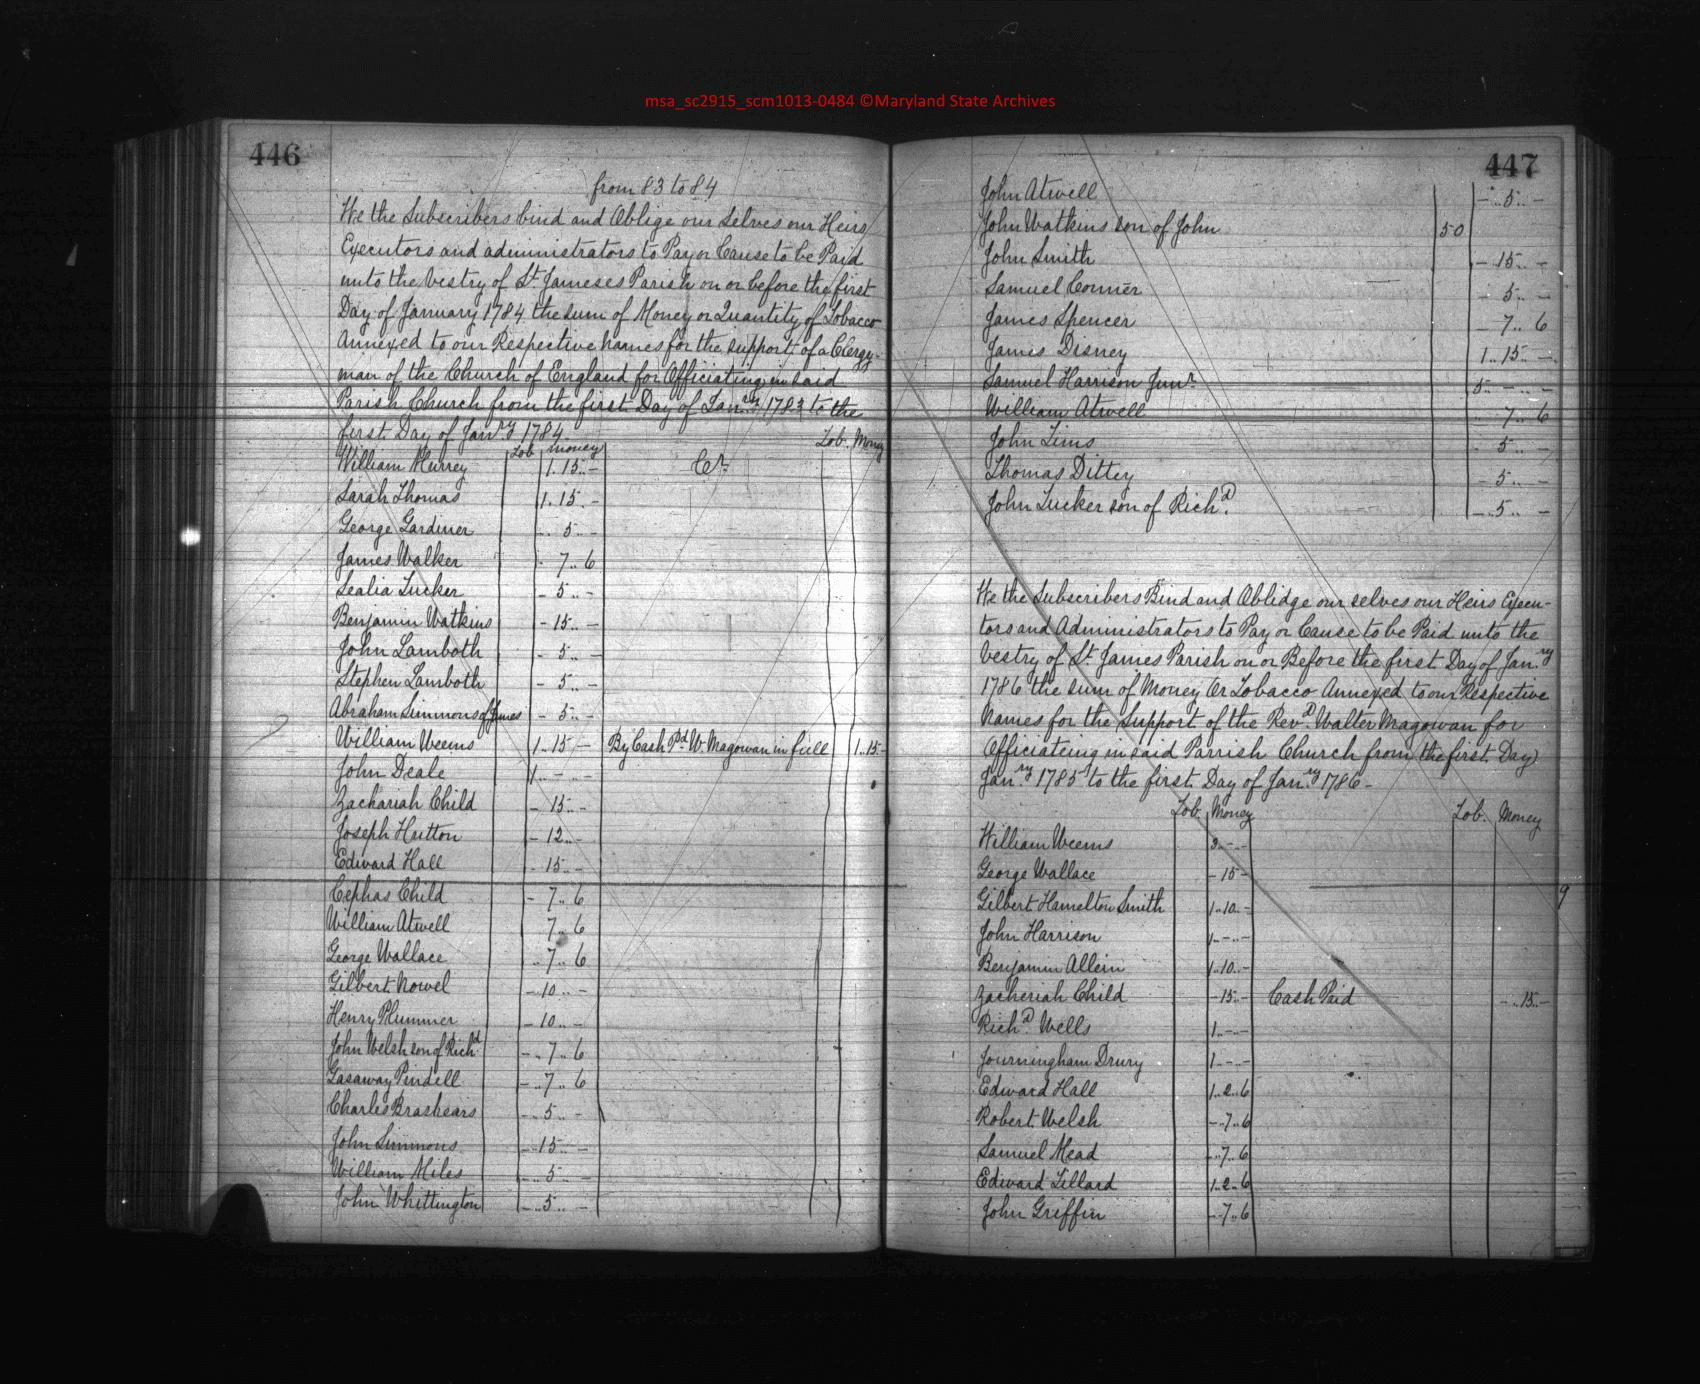 msa_sc2915_scm1013-0484 ©Maryland State Archives
446
from 83 to 84
We the Subscribers bind and Oblige our Selves our Heirs
Executors and administrators to Pay or Cause to be Paid
unto the Vestry of St. Jameses Parish on or before the first
Day of January 1784 the sum of Money or Quantity of Tobacco
Annexed to our Respective names for the support of a Clergy-
man of the Church of England for Officiating in said
Parish Church from the first Day of Janry 1783 to the
first Day of Janry 1784.
Tob Money Tob. Money
William Murrey 1.15..- Cr.
Sarah Thomas 1.15..-
George Gardiner -..5..-
James Walker -7..6
Sealia Tucker -5..-
Benjamin Watkins -15..-
John Lamboth -5..-
Stephen Lamboth -5..-
Abraham Simmons of James -5..-
William Weems 1..15- By Cash Pd. W. Magowan in full 1..15-
John Deale 1..-..-
Zachariah Child -15..-
Joseph Hutton -12..-
Edward Hall -15..-
Cephas Child -7..6
William Atwell 7..6
George Wallace ..7..6
Gilbert Nowel -10..-
Henry Plummer -10..-
John Welsh son of Richd -..7..6
Gasaway Pindell -..7..6
Charles Brashears -..5..-
John Simmons -..15..-
William Miles -..5..-
John Whittington -..5..-
447
John Atwell -..5..-
John Watkins son of John 50
John Smith -15..-
Samuel Conner -5..-
James Spencer -7..6
James Disney 1..15-
Samuel Harrison Junr. 5..-..-
William Atwell -7..6
John Tims -5..-
Thomas Dittey -5..-
John Tucker son of Richd. -..5..-
We the Subscribers Bind and Oblidge our selves our Heirs Execu-
tors and Administrators to Pay or Cause to be Paid unto the
Vestry of St. James Parish on or Before the first Day of Jan.ry
1786 the sum of Money Or Tobacco Annexed to our Respective
Names for the Support of the Revd. Walter Magowan for
Officiateing in said Parrish Church from the first Day
Jan.ry 1785 to the first Day of Jan.ry 1786-
Tob. Money Tob. Money
William Weems 3..-..-
George Wallace -15-
Gilbert Hamelton Smith 1..10..-
John Harrison 1..-..-
Benjamin Allein 1..10..-
Zacheriah Child -15- Cash Paid -..15..-
Richd Wells 1..-..-
Journingham Drury 1..-..-
Edward Hall 1..2..6
Robert Welsh -..7..6
Samuel Mead -..7..6
Edward Tillard 1..2..6
John Griffin -..7..6